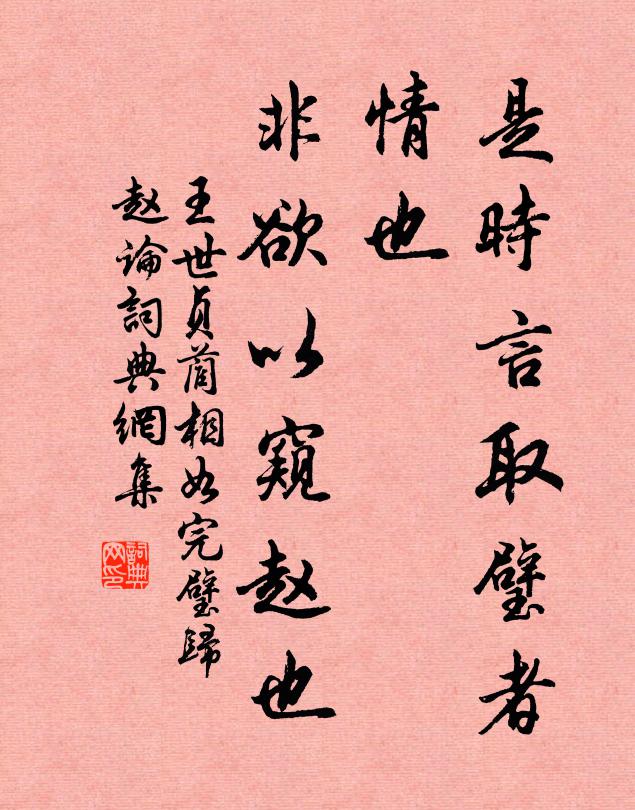 是時言取璧者
情也
非欲以窺赵也
王世貞藺相如完璧歸
赵論詞典網集
詞典
网印